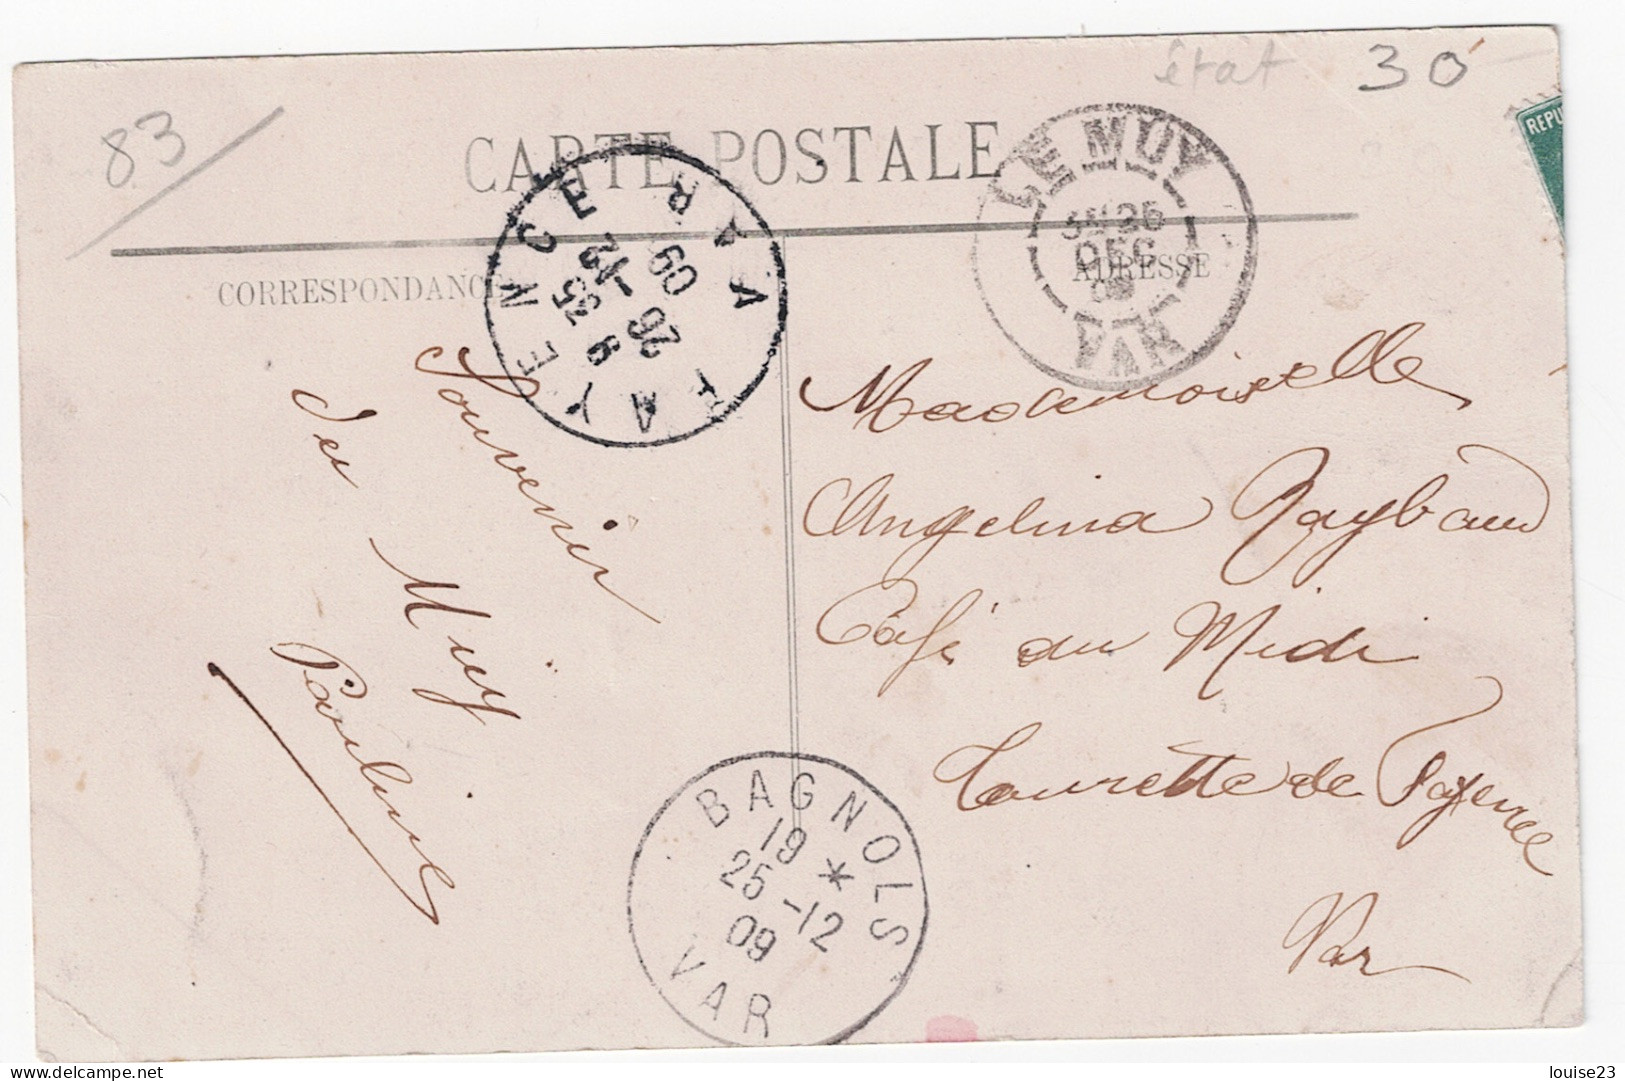 83
état 30
CARTE POSTALE
CORRESPONDANCE
ADRESSE
REPU
LE MUY
26
DEC
09
VAR
FAYENCE
9 35
26 -12
09
VAR
Souvenir
du Muy
Pauline
Mademoiselle
Angelina Raybaud
Café du Midi
Tourette de Fayence
Var
BAGNOLS
19 *
25 -12
09
VAR
delcampe.net
louise23